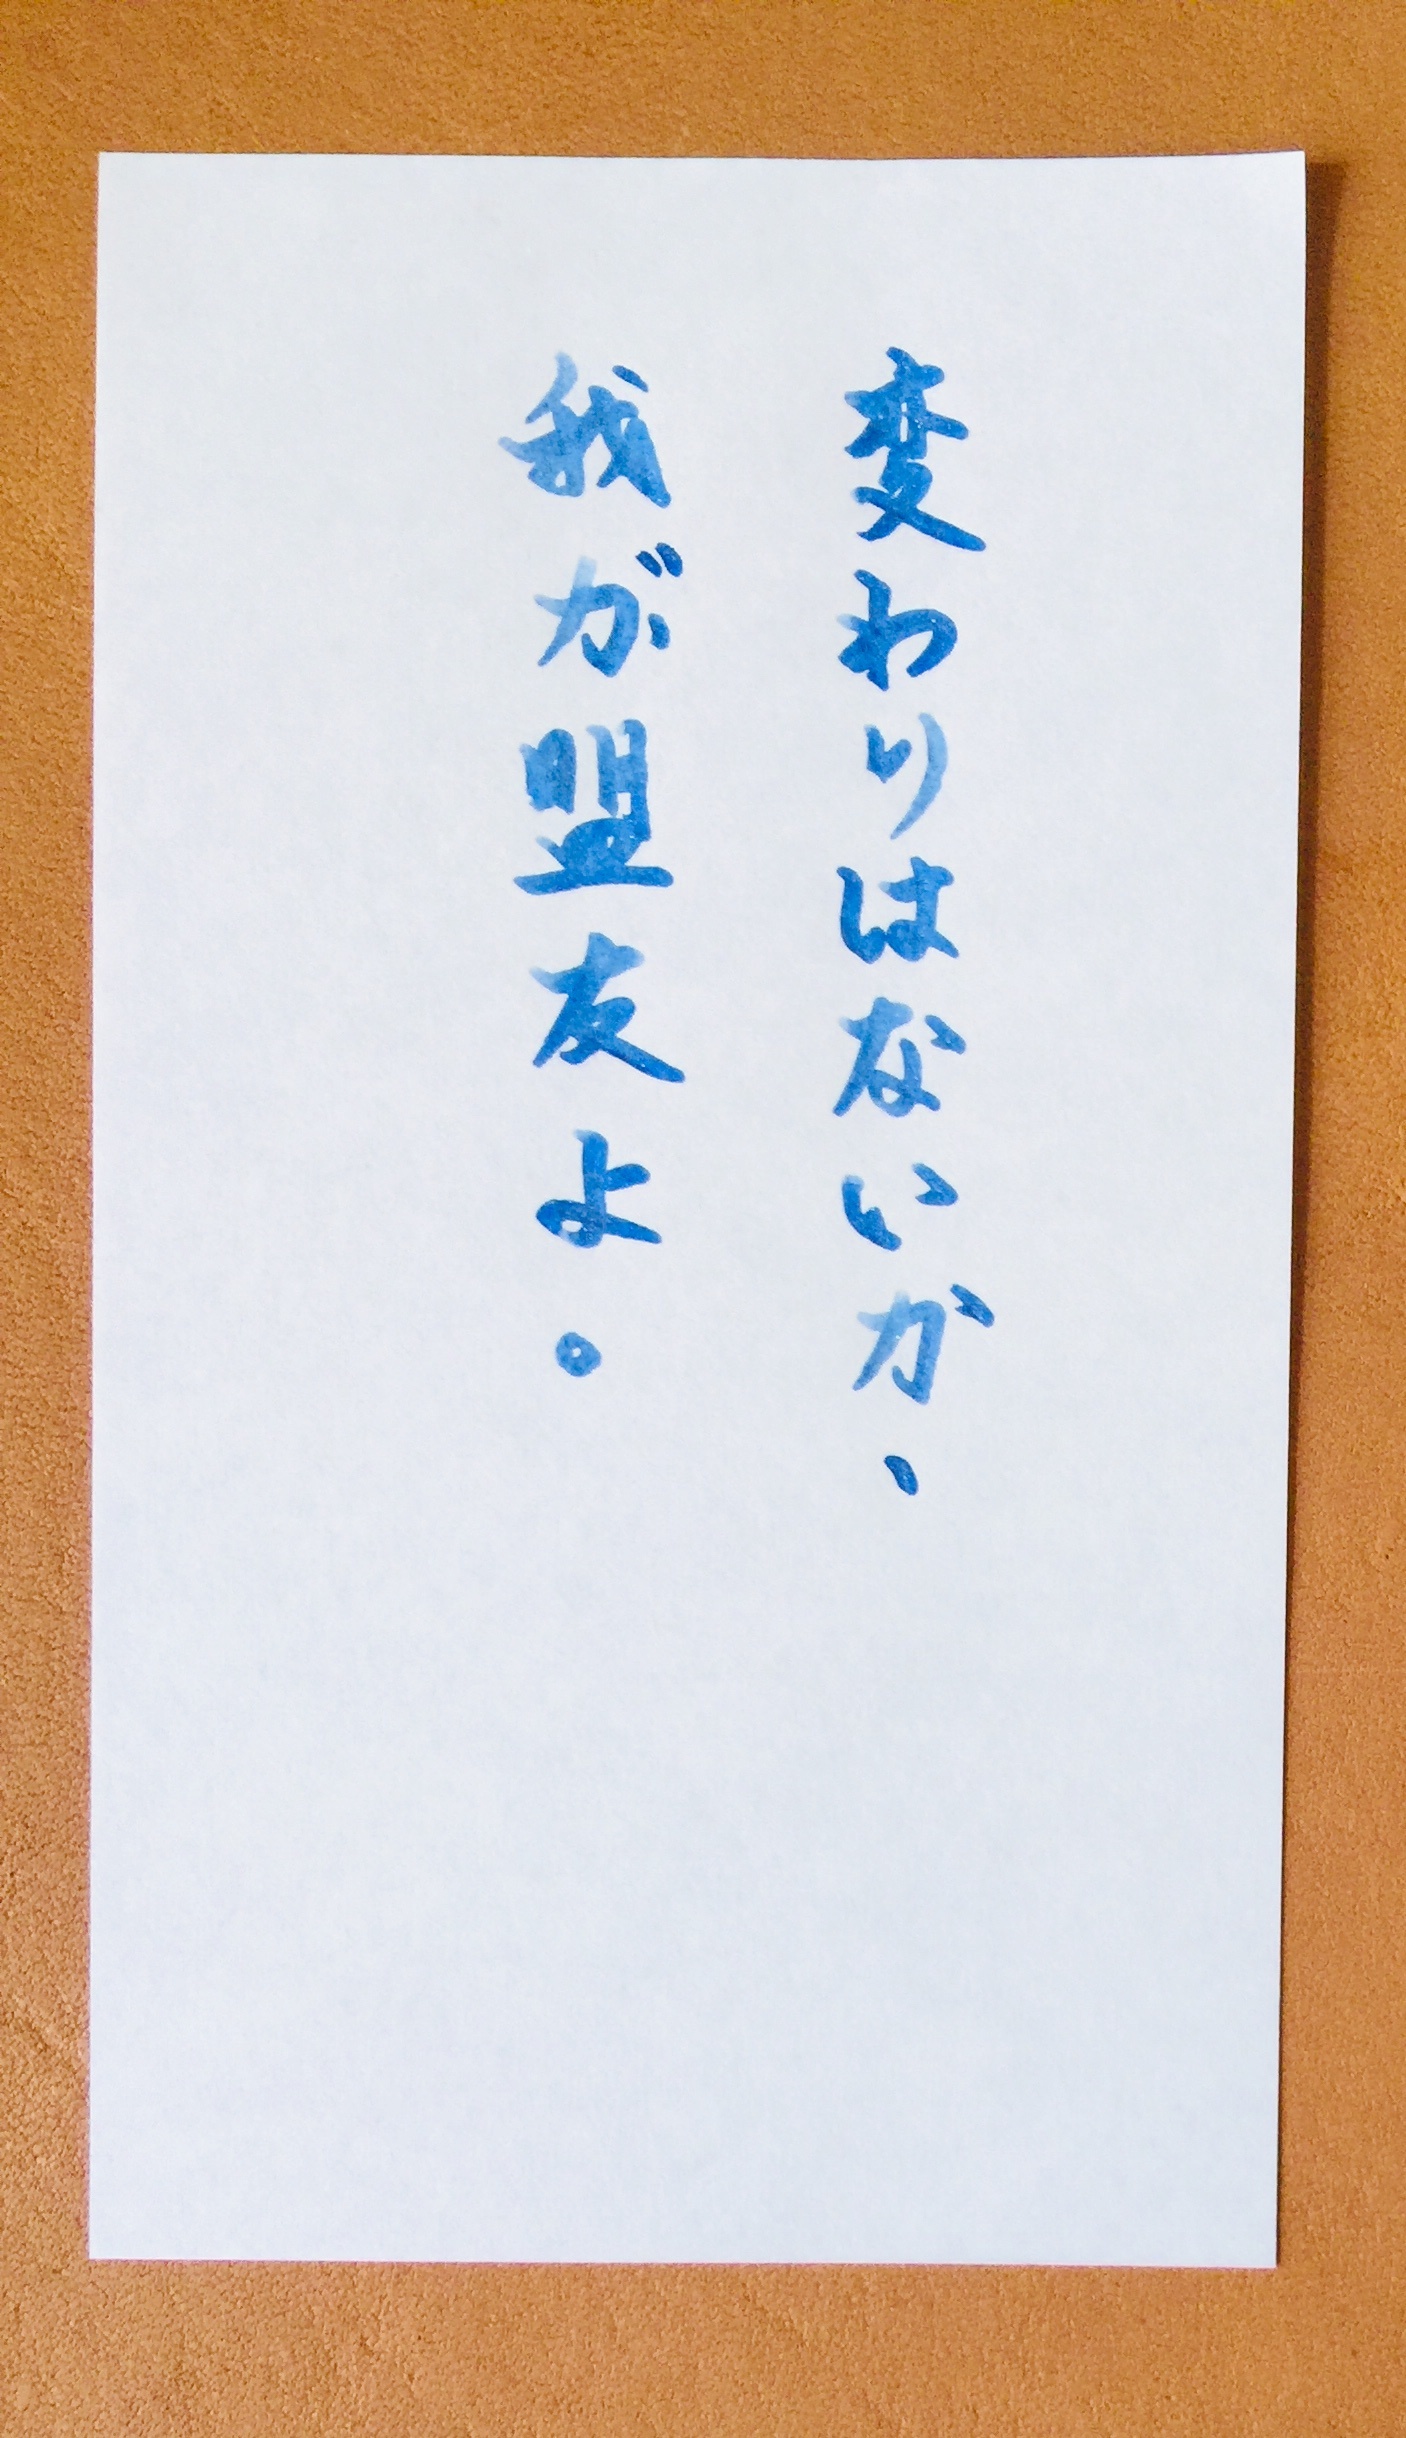 変わりはないか、
我が盟友よ。